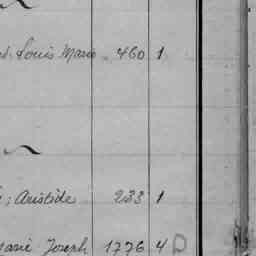 Louis Marie 460 1
Aristide 233 1
Marie Joseph 1776 4 D